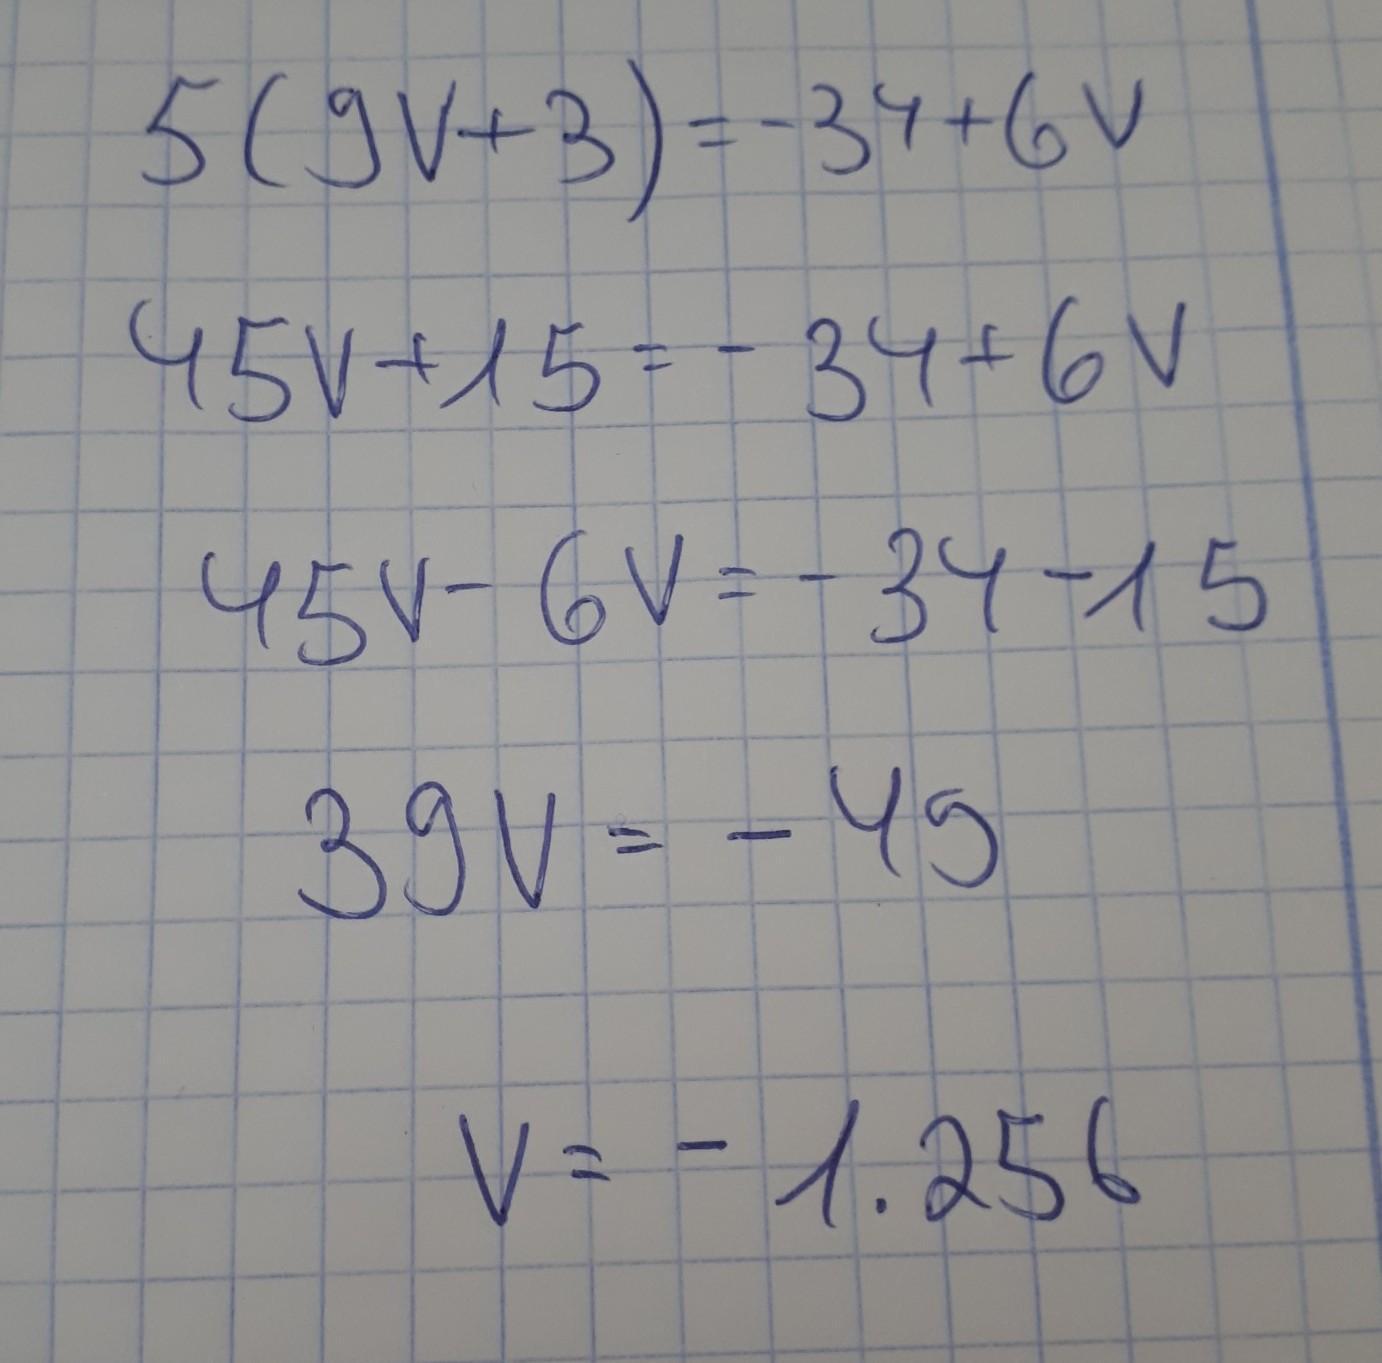 5(9V+3)=-34+6V
45V+15=-34+6V
45V-6V=-34-15
39V=-49
V=-1.256